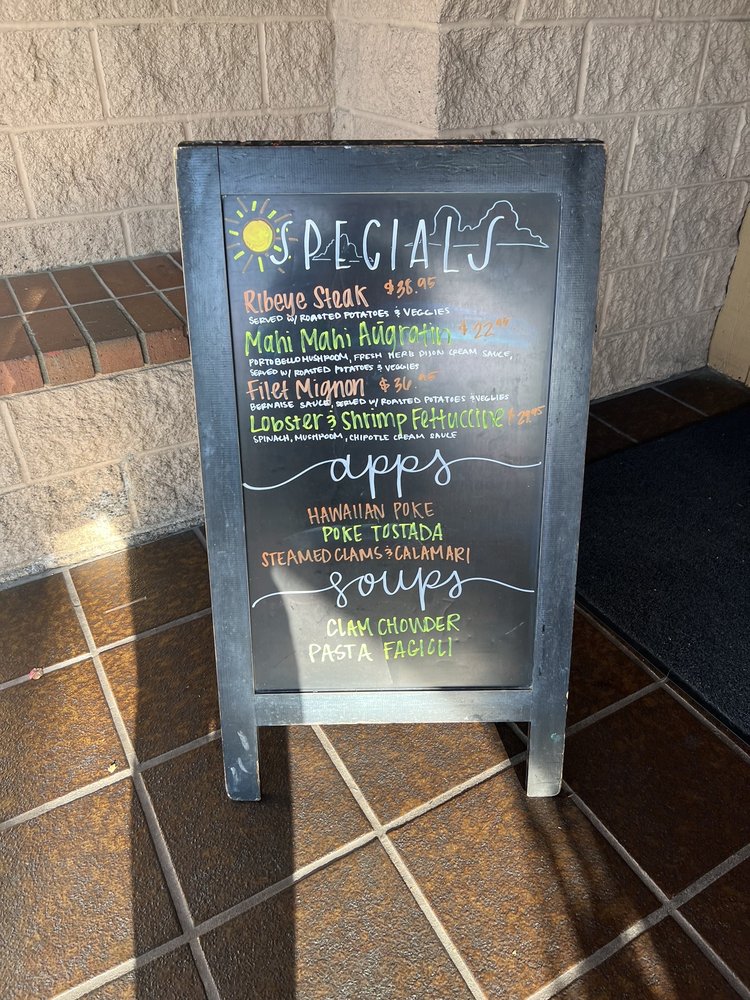 SPECIALS
Ribeye Steak $38.95
SERVED W/ ROASTED POTATOES & VEGGIES
Mahi Mahi Augratin $22.95
PORTOBELLO MUSHROOM, FRESH HERB DIJON CREAM SAUCE,
SERVED W/ ROASTED POTATOES & VEGGIES
Filet Mignon $36.95
BERNAISE SAUCE, SERVED W/ ROASTED POTATOES & VEGGIES
Lobster & Shrimp Fettuccine $29.95
SPINACH, MUSHROOM, CHIPOTLE CREAM SAUCE
apps
HAWAIIAN POKE
POKE TOSTADA
STEAMED CLAMS & CALAMARI
soups
CLAM CHOWDER
PASTA FAGIOLI